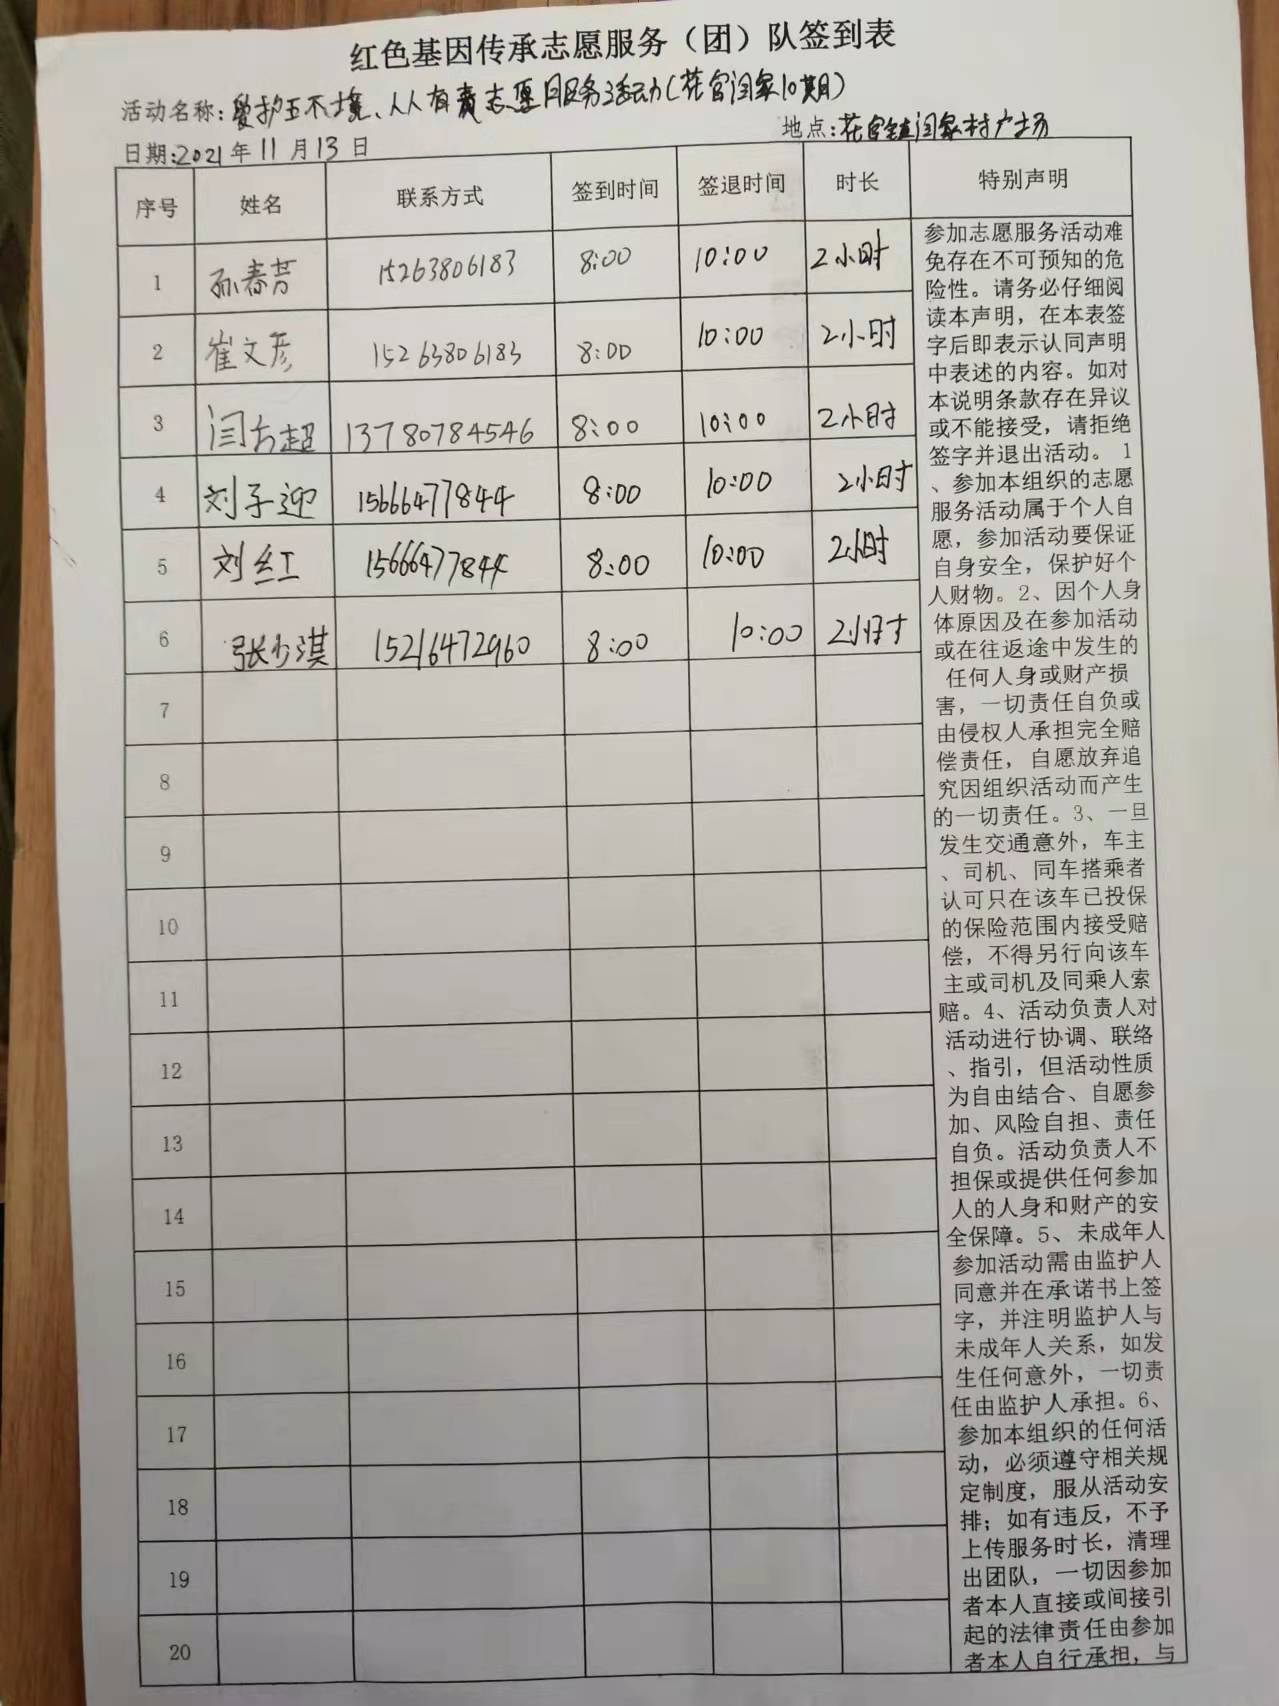 红色基因传承志愿服务（团）队签到表
活动名称:爱护环境、人人有责志愿服务活动(花官闫家10期)
地点:花官镇闫家村广场
日期:2021年11月13日
序号 姓名 联系方式 签到时间 签退时间 时长 特别声明
1 孙春芳 15263806183 8:00 10:00 2小时
2 崔文彦 15263806183 8:00 10:00 2小时
3 闫 超 13780784546 8:00 10:00 2小时
4 刘子迎 15666477844 8:00 10:00 2小时
5 刘红 15666477844 8:00 10:00 2小时
6 张少淇 15216472960 8:00 10:00 2小时
7
8
9
10
11
12
13
14
15
16
17
18
19
20
参加志愿服务活动难
免存在不可预知的危
险性。请务必仔细阅
读本声明，在本表签
字后即表示认同声明
中表述的内容。如对
本说明条款存在异议
或不能接受，请拒绝
签字并退出活动。 1
、参加本组织的志愿
服务活动属于个人自
愿，参加活动要保证
自身安全，保护好个
人财物。2、因个人身
体原因及在参加活动
或在往返途中发生的
任何人身或财产损
害，一切责任自负或
由侵权人承担完全赔
偿责任，自愿放弃追
究因组织活动而产生
的一切责任。3、一旦
发生交通意外，车主
、司机、同车搭乘者
认可只在该车已投保
的保险范围内接受赔
偿，不得另行向该车
主或司机及同乘人索
赔。4、活动负责人对
活动进行协调、联络
、指引，但活动性质
为自由结合、自愿参
加、风险自担、责任
自负。活动负责人不
担保或提供任何参加
人的人身和财产的安
全保障。5、未成年人
参加活动需由监护人
同意并在承诺书上签
字，并注明监护人与
未成年人关系，如发
生任何意外，一切责
任由监护人承担。6、
参加本组织的任何活
动，必须遵守相关规
定制度，服从活动安
排；如有违反，不予
上传服务时长，清理
出团队，一切因参加
者本人直接或间接引
起的法律责任由参加
者本人自行承担，与